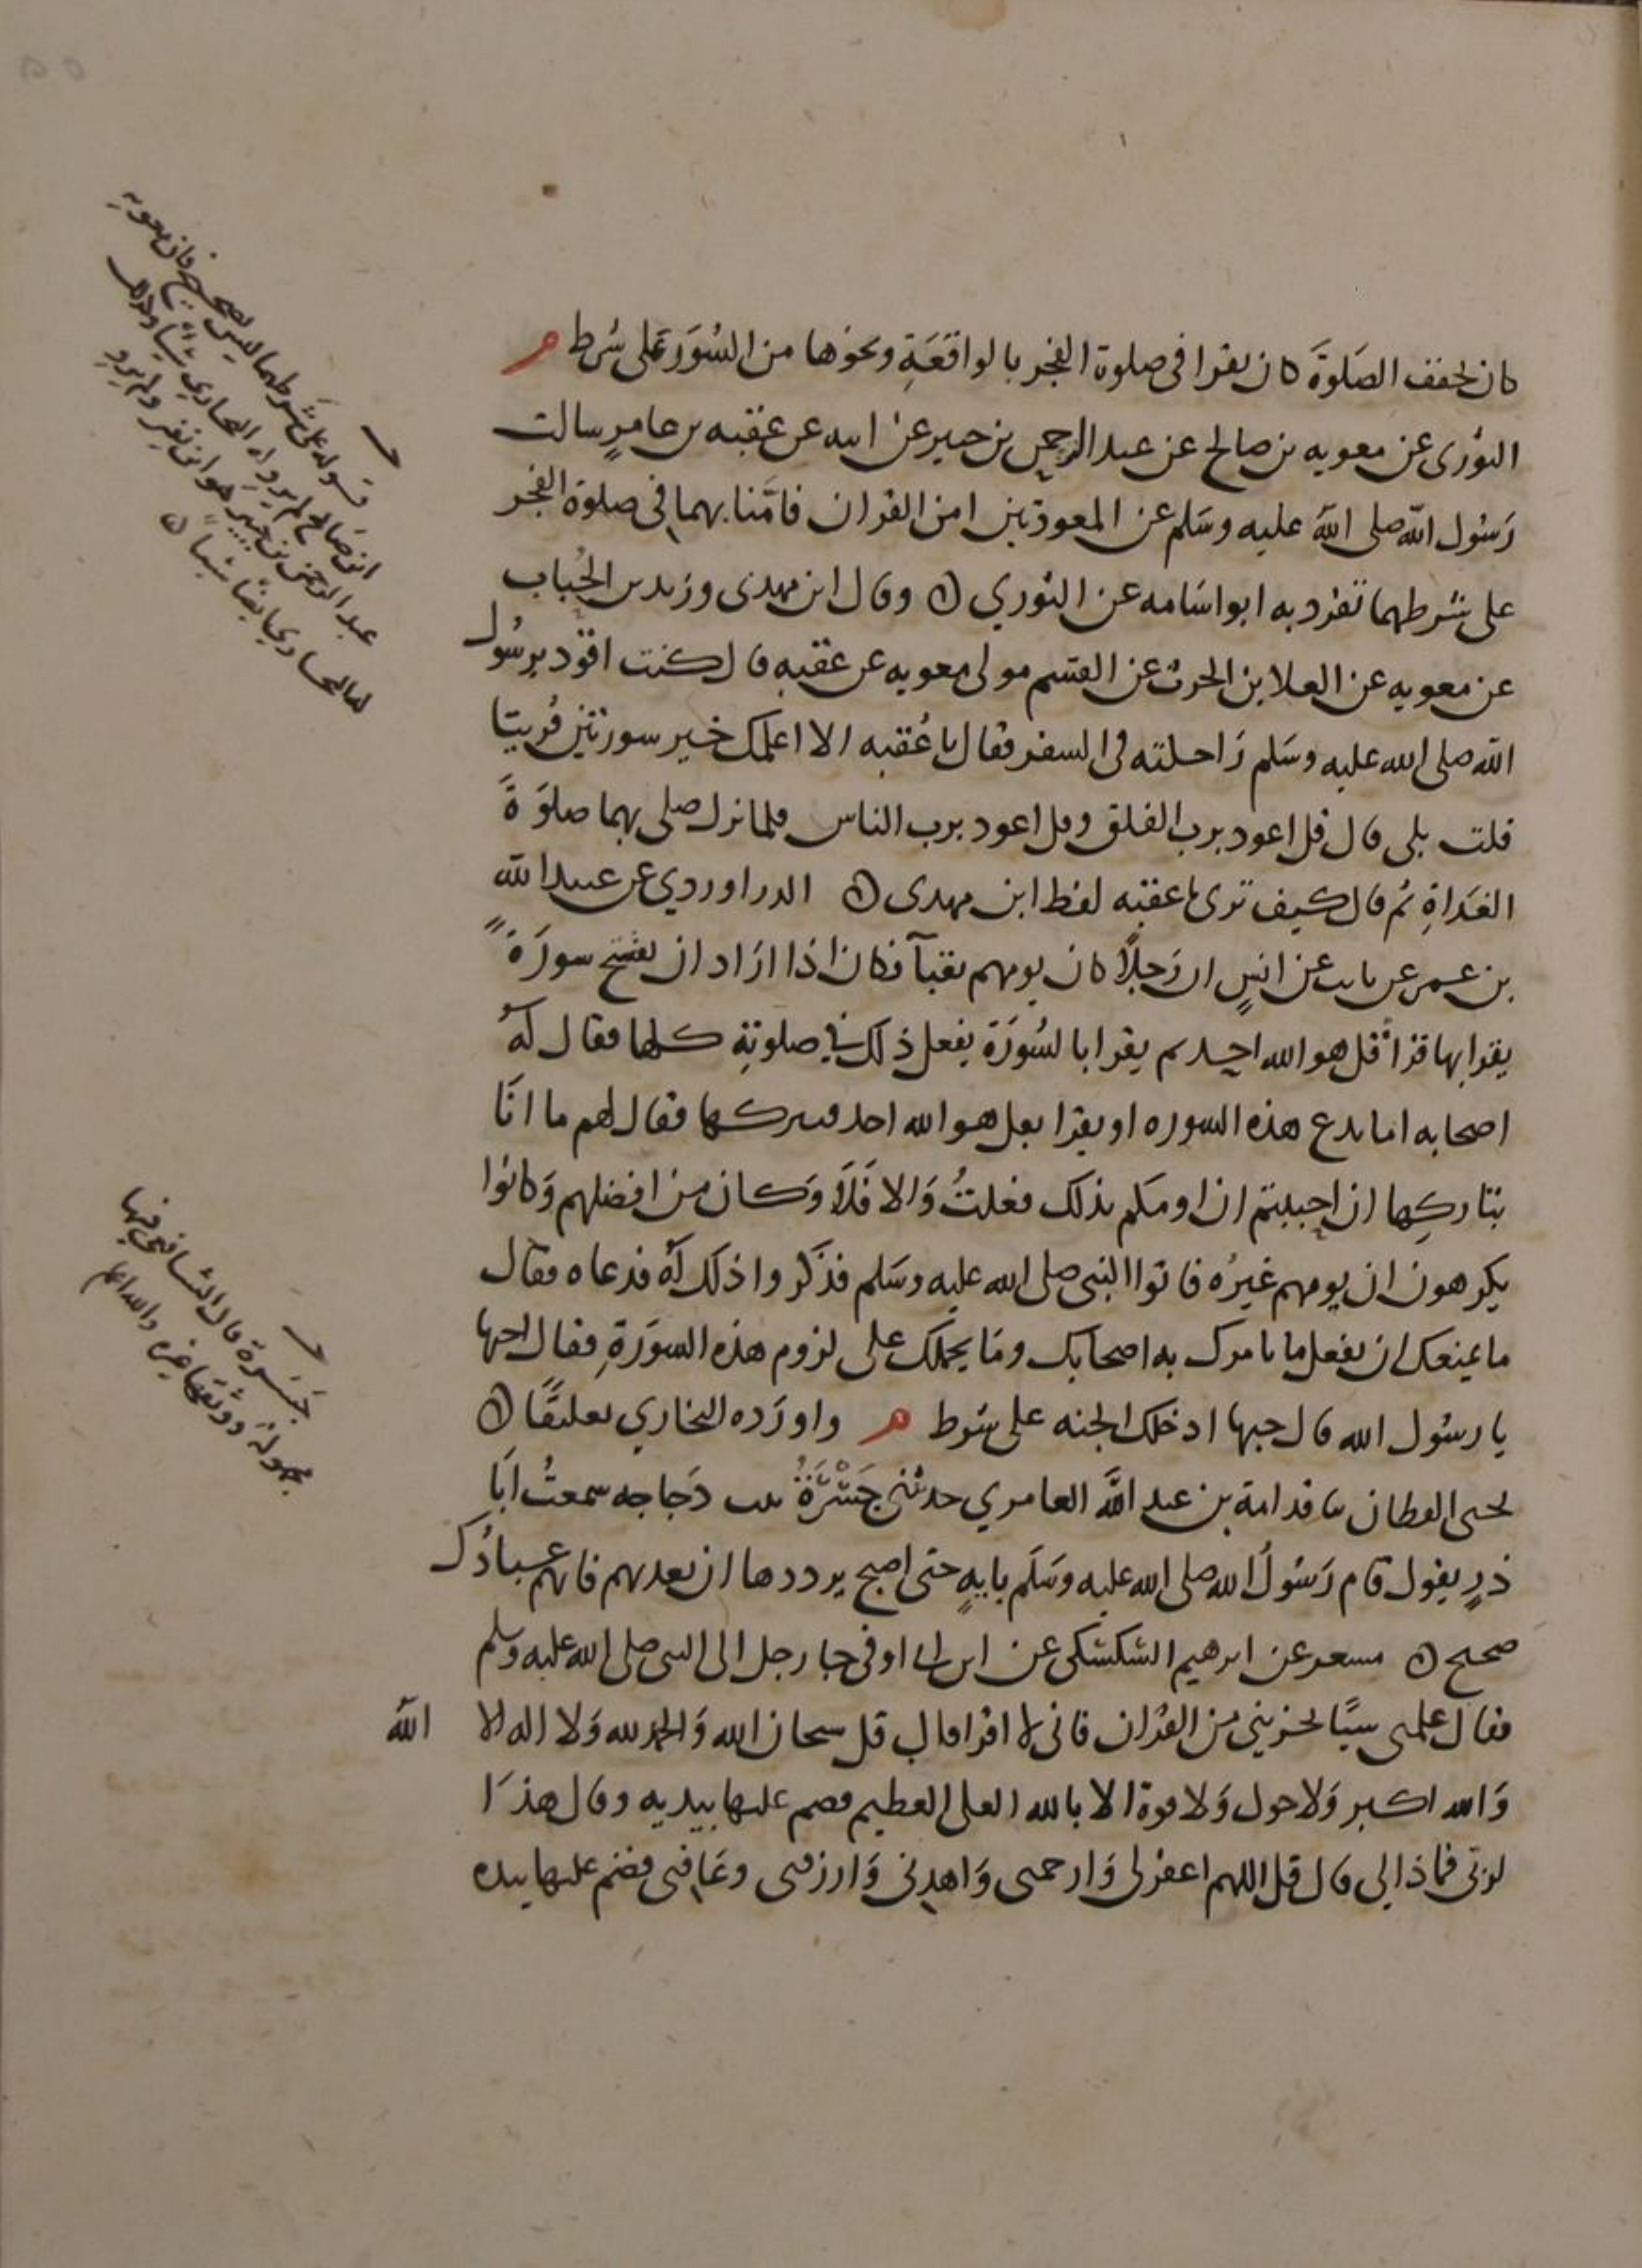 كان يخفف الصَلوةَ كان يقرا فى صلوة الفجر بالواقعَةِ ونحوها من السُوَر على شرط م
الثورى عن معويه بن صالح عن عبد الرحمن بن جبير عن ابيه عن عقبه بن عامرٍ سالت
رَسُول الله صلى الله عليه وسَلم عن المعوذتين امن القران فامَّنا بهما فى صلوة الفجر
على شرطهما تفرد به ابو اسَامه عن الثوري ۞ وقال ابن مهدى وزيد بن الحُباب
عن معويه عن العلا بن الحرث عن القسم مولى معويه عن عقبه قال كنت اقود برسُول
الله صلى الله عليه وسَلم رَاحلته فى السفر فقال يا عُقبه الا اعلمك خير سورتين قُريتا
قلت بلى قال قل اعوذ برب الفلق وقل اعوذ برب الناس فلما نزل صلى بهما صلوَةَ
الغدَاةِ ثم قال كيف ترى يا عقبه لفظ ابن مهدى ۞ الدراوردي عن عبيد الله
بن عمر عن ثابت عن انسٍ ان رَجلًا كان يومهم بقبآ فكان اذا ارَاد ان يفتتح سورَةً
يقرا بها قرأ قل هو الله احد ثم يقرا بالسُورَة يفعل ذلك في صلوتِهِ كلها فقال لهُ
اصحابه اما تدع هذه السوره او تقرا بقل هو الله احد فتتركها فقال لهم ما انَا
بتاركِها ان احببتم ان اومكم بذلك فعلتُ وَالا فَلَا وَكان من افضلهم وَكانوا
يكرهون ان يومهم غيرُه فاتوا النبى صلى الله عليه وسَلم فذَكروا ذلك لهُ فدعاه فقال
ما يمنعك ان تفعل ما يامرك به اصحابك ومَا يحملك على لزوم هذه السوَرَةِ فقال احبها
يا رسُول الله قال حبها ادخلك الجنه على شرط م واورَده البخاري تعليقًا ۞
يحيى القطان ثنا قدامة بن عبد الله العامري حدثتنى جَسْرَةُ بنت دَجاجه سمعتُ ابَا
ذرٍ يقول قام رَسُولُ الله صلى الله عليه وسَلَم بايهٍ حتى اصبح يرددها ان تعذبهم فانهم عبادُك
صحيح ۞ مسعر عن ابرهيم السكسكى عن ابن ابى اوفى جا رجل الى النبى صلى الله عليه وسلم
فقال علمنى شيًا يجزيني من القرُان فانى لا اقرا قال قل سبحان الله وَالحمد لله وَلا اله الا الله
وَالله اكبر وَلا حول وَلا قوة الا بالله العلى العظيم فضم عليها بيديه وقال هذَا
لربى فماذا لي قال قل اللهم اغفر لى وَارحمنى وَاهدنى وَارزقنى وعَافنى فضم عليها بيده
قوله على شرطهما ليس بصحيح فان معويه
ابن صَالح لم يرو له البخاري شيًا وكذلك
عبد الرحمن بن جبير هو ابن نفير ولم يرو
له البخاري ايضًا شيا ۞
جَسْرة قال الشافعى فيها
مجهولة ووثقها غيره والله اعلم